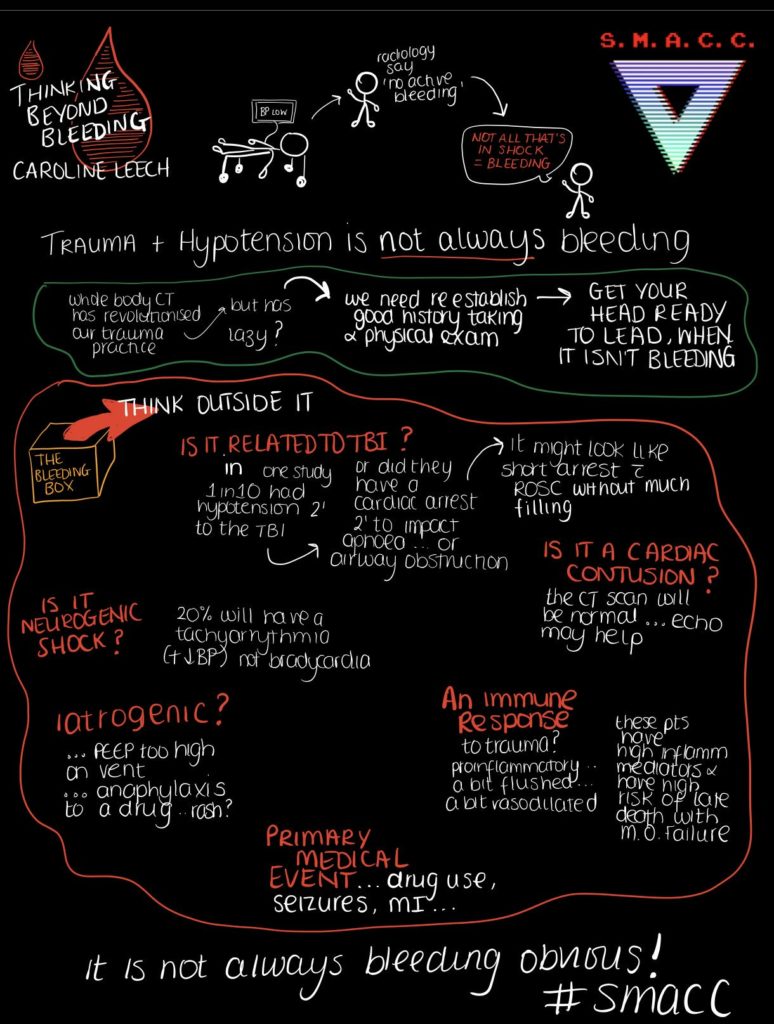 S. M. A. C. C.
THINKING
BEYOND
BLEEDING
CAROLINE LEECH
BP LOW
radiology
say
'no active
bleeding'
NOT ALL THAT'S
IN SHOCK
= BLEEDING
TRAUMA + HYPOTENSION is not always bleeding
whole body CT
has revolutionised
our trauma
practice
but has
lazy?
we need re establish
good history taking
& physical exam
GET YOUR
HEAD READY
TO LEAD, WHEN
IT ISN'T BLEEDING
THINK OUTSIDE IT
THE
BLEEDING
BOX
IS IT RELATED TO TBI ?
in one study
1 in 10 had
hypotension 2'
to the TBI
or did they
have a
cardiac arrest
2' to impact
apnoea ... or
airway obstruction
It might look like
short arrest c̄
ROSC without much
filling
IS IT A CARDIAC
CONTUSION ?
the CT scan will
be normal ... echo
may help
IS IT
NEUROGENIC
SHOCK ?
20% will have a
tachyarrythmia
(+↓BP) not bradycardia
Iatrogenic ?
... PEEP too high
on vent
... anaphylaxis
to a drug .. rash?
An immune
Response
to trauma?
proinflammatory ..
a bit flushed ...
a bit vasodilated
these pts
have
high inflamm
mediators &
have high
risk of late
death with
M.O. Failure
PRIMARY
MEDICAL
EVENT ... drug use,
seizures, MI ...
it is not always bleeding obvious!
#smacc